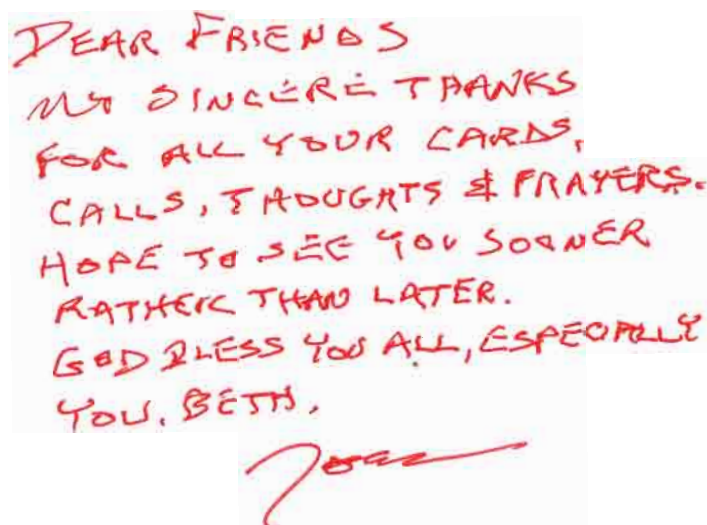 DEAR FRIENDS
MY SINCERE THANKS
FOR ALL YOUR CARDS,
CALLS, THOUGHTS & PRAYERS.
HOPE TO SEE YOU SOONER
RATHER THAN LATER.
GOD BLESS YOU ALL, ESPECIALLY
YOU, BETH.